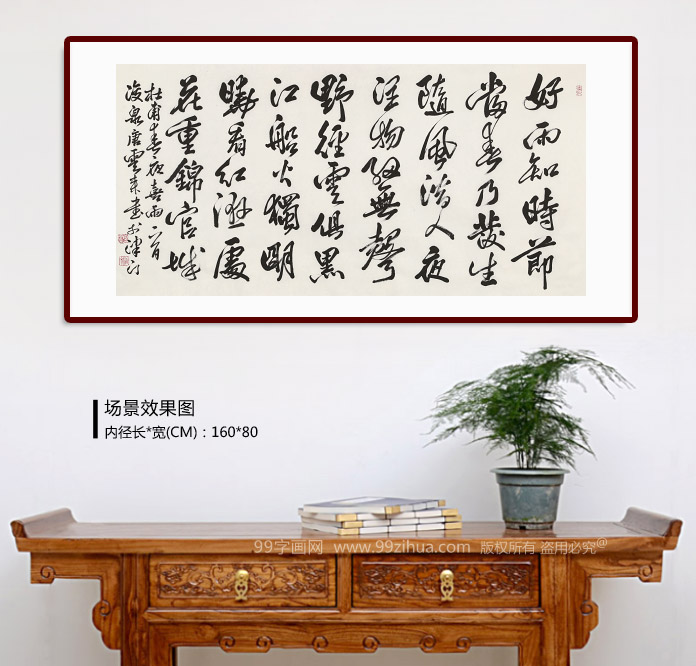 好雨知時節
當春乃發生
隨風潛入夜
潤物細無聲
野徑雲俱黑
江船火獨明
曉看紅濕處
花重錦官城
杜甫春夜喜雨
泉唐雲來書於津
场景效果图
内径长*宽(CM)：160*80
99字画网 www.99zihua.com 版权所有 盗用必究@